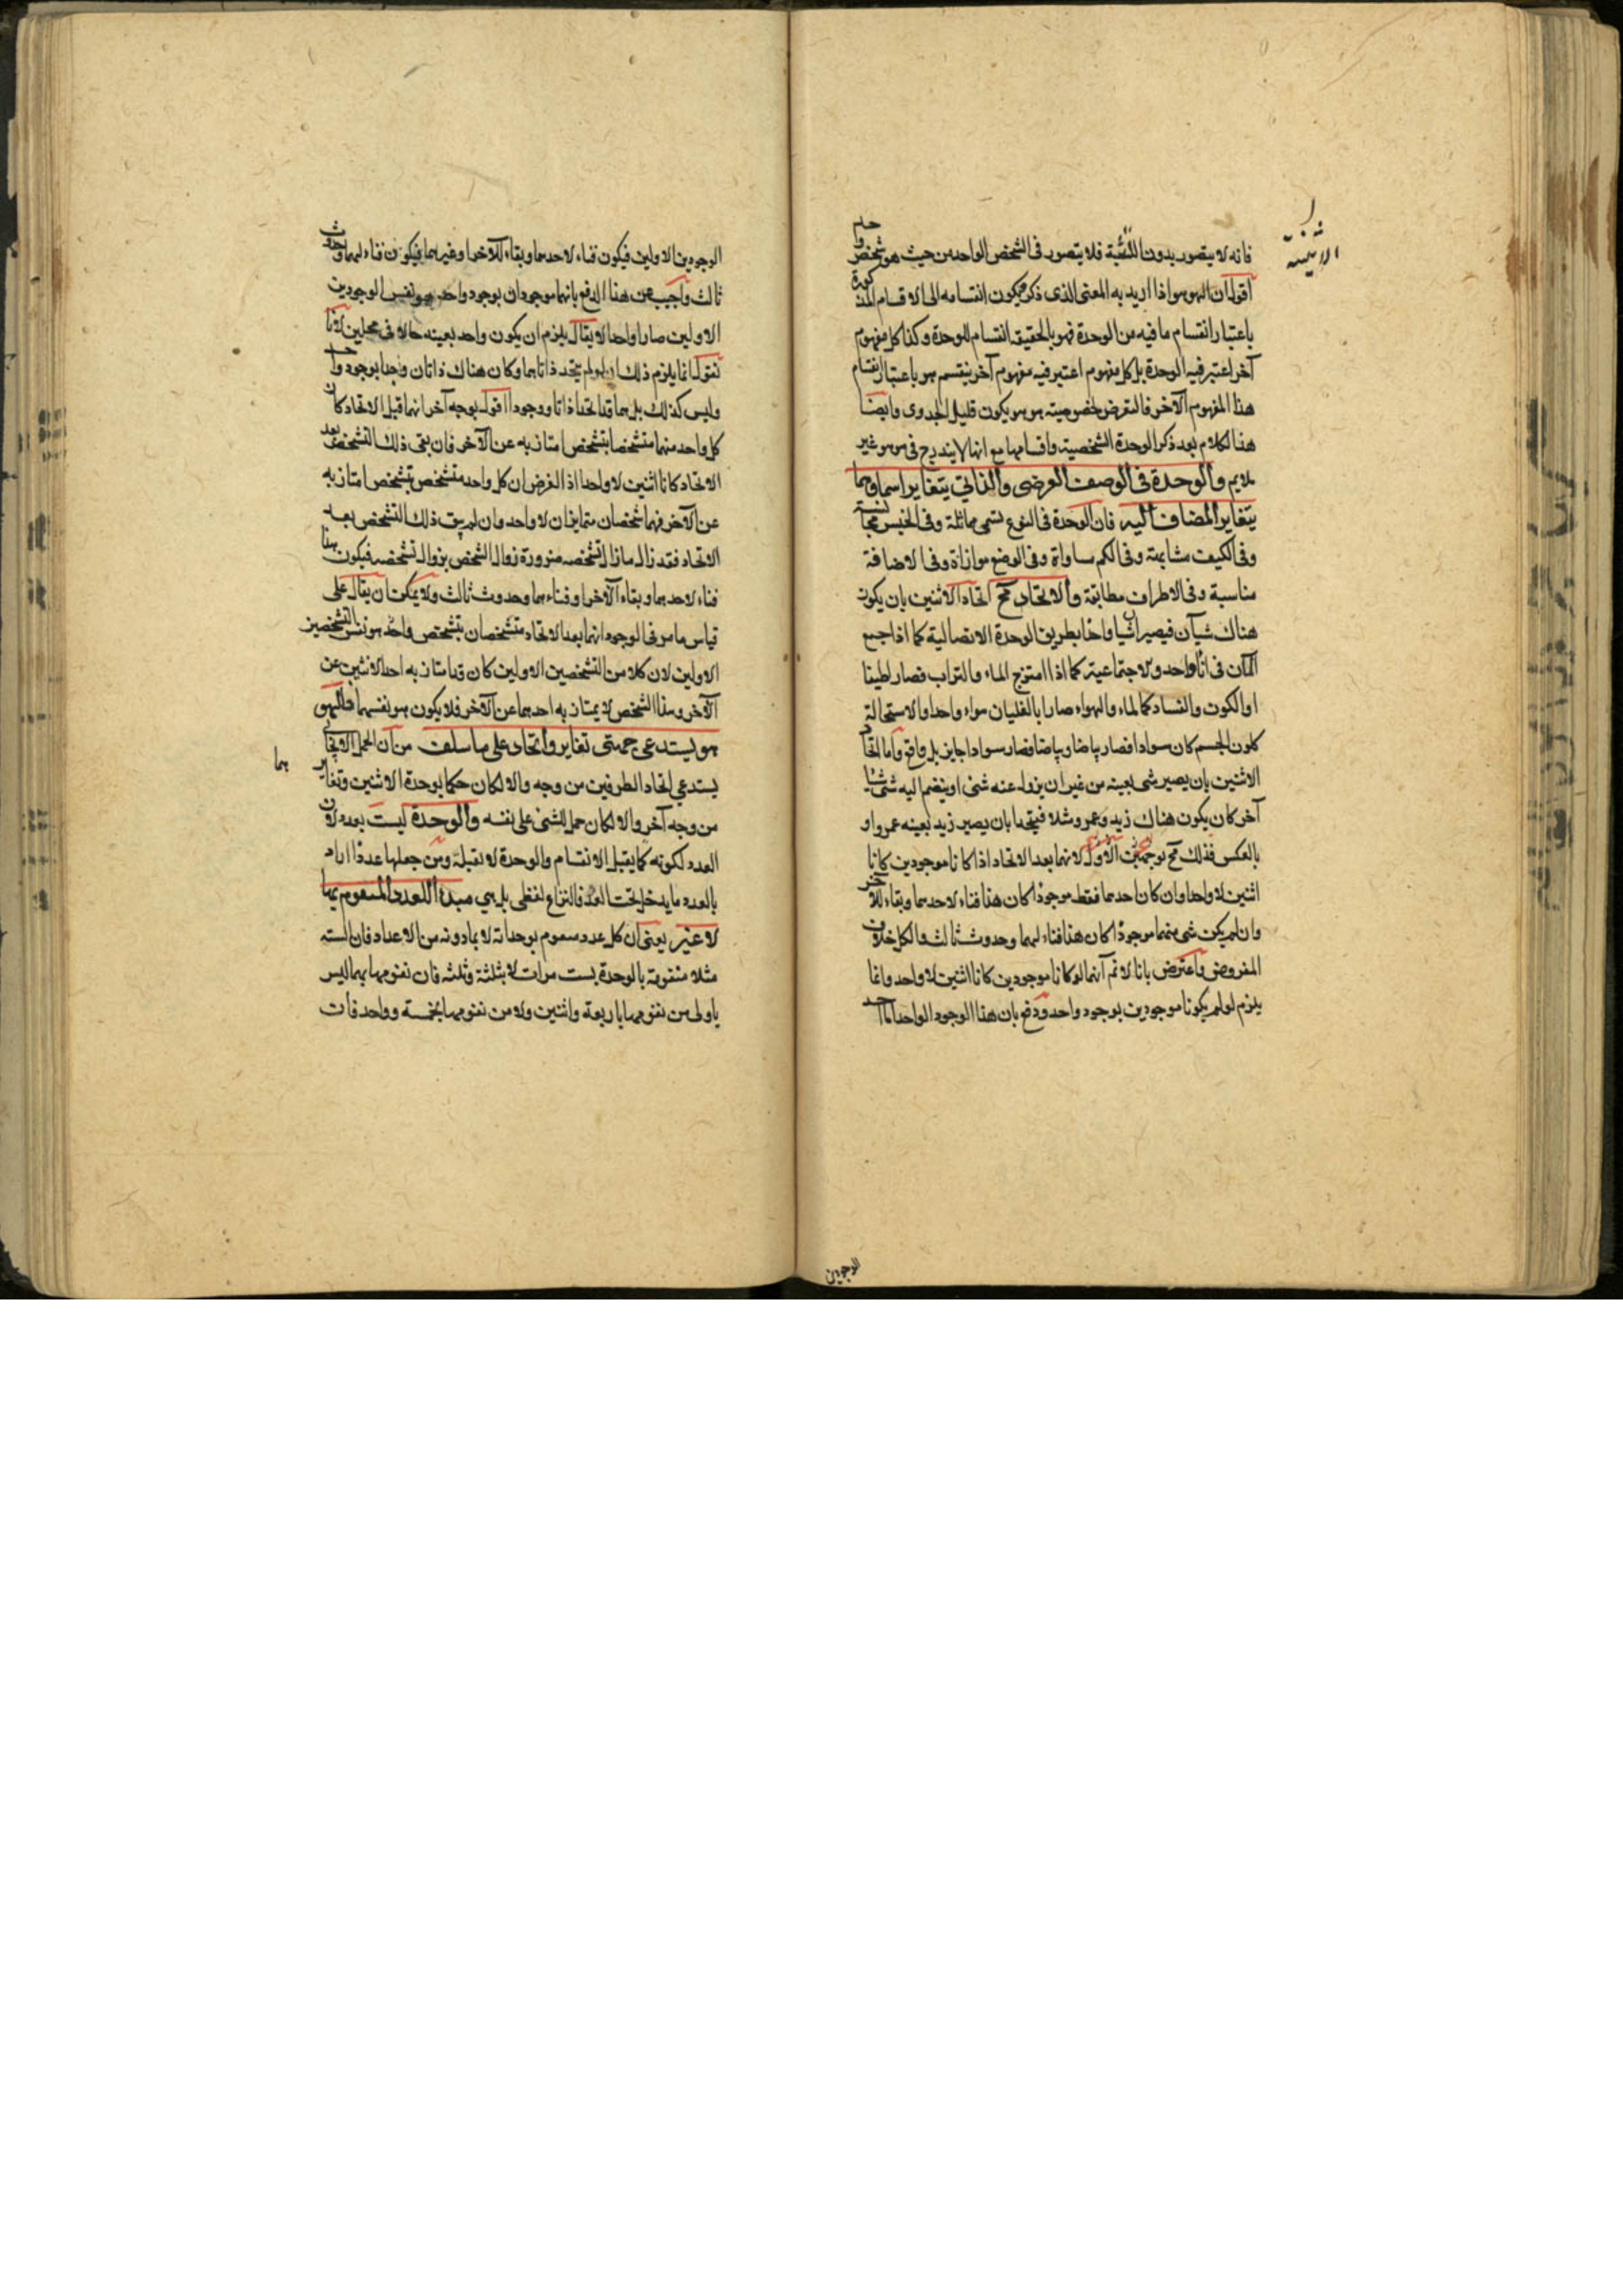 فانه لا يتصور بدون النسبة فلا يتصور فى الشخص الواحد من حيث هو شخص واحد
الاثنينية
اقول ان الهوهو اذا اريد به المعنى الذى ذكر فيكون انقسامه الى الاقسام المذكورة
باعتبار انقسام ما فيه من الوحدة فهو بالحقيقة انقسام للوحدة وكذا كل مفهوم
آخر اعتبر فيه الوحدة بل كل مفهوم اعتبر فيه مفهوم آخر ينقسم هو باعتبار انقسام
هذا المفهوم الآخر فالتعرض لخصوصية هوهو يكون قليل الجدوى وايضا
هذا الكلام بعد ذكر الوحدة الشخصية واقسامها مع انها لا يندرج فى هوهو غير
ملايم والوحدة فى الوصف العرضى والذاتى يتغاير اسماؤهما
بتغاير المضاف اليه فان الوحدة فى النوع تسمى مماثلة وفى الجنس مجانسة
وفى الكيف مشابهة وفى الكم مساواة وفى الوضع موازاة وفى الاضافة
مناسبة وفى الاطراف مطابقة والاتحاد مح اتحاد الاثنين بان يكون
هناك شيآن فيصيرا شيا واحدا بطريق الوحدة الاتصالية كما اذا جمع
المآن فى اناء واحد والاجتماعية كما اذا امتزج الماء والتراب فصار لطينا
او الكون والفساد كالماء والهواء صارا بالغليان هواء واحدا والاستحالة
كلون الجسم كان سوادا فصار بياضا وبياضا فصار سوادا جايز بل واقع واما اتحاد
الاثنين بان يصير شى بعينه من غير ان يزول عنه شئ او ينضم اليه شئ شيئا
آخر كان يكون هناك زيد وعمرو مثلا فيتحدا بان يصير زيد بعينه عمروا و
بالعكس فذلك مح لوجهين الاول لانهما بعد الاتحاد اذا كانا موجودين كانا
اثنين لا واحدا وان كان احدهما فقط موجودا كان هذا فناء لاحدهما وبقاء للآخر
وان لم يكن شى منهما موجودا كان هذا فناء لهما وحدوث ثالث والكل خلاف
المفروض واعترض بانا لا نم انهما لو كانا موجودين كانا اثنين لا واحد وانما
يلزم لو لم يكونا موجودين بوجود واحد ودفع بان هذا الوجود الواحد اما احد
الوجودين
الوجودين الاولين فيكون فناء لاحدهما وبقاء للآخر او غيرهما فيكون فناء لهما وحدوث
ثالث واجيب عن هذا الدفع بانهما موجودان بوجود واحد هو نفس الوجودين
الاولين صارا واحدا لا يقال يلزم ان يكون واحد بعينه حالا فى محلين لانا
نقول انما يلزم ذلك ان لو لم يتحد ذاتاهما وكان هناك ذاتان وجدا بوجود واحد
وليس كذلك بل هما قد اتحدا ذاتا ووجودا اقول بوجه آخر انهما قبل الاتحاد كان
كل واحد منهما متشخصا بتشخص امتاز به عن الآخر فان بقى ذلك التشخص بعد
الاتحاد كانا اثنين لا واحدا اذ الفرض ان كل واحد متشخص بتشخص امتاز به
عن الآخر فهما شخصان متمايزان لا واحد وان لم يبق ذلك التشخص بعد
الاتحاد فقد زال ما زال تشخصه ضرورة زوال الشخص بزوال تشخصه فيكون هذا
فناء لاحدهما وبقاء الآخر او فناءهما وحدوث ثالث ولا يمكن ان يقال على
قياس ما مر فى الوجود انهما بعد الاتحاد متشخصان بتشخص واحد هو نفس التشخصين
الاولين لان كلا من التشخصين الاولين كان قد امتاز به احد الاثنين عن
الآخر وهذا الشخص لا يمتاز به احدهما عن الآخر فلا يكون هو نفسهما فالهو
هو يستدعى جهتى تغاير واتحاد على ما سلف من ان الحمل الايجابى
يستدعى اتحاد الطرفين من وجه والا لكان حكما بوحدة الاثنين وتغايرهما
من وجه آخر والا لكان حمل الشئ على نفسه والوحدة ليست بعدد لان
العدد لكونه كما يقبل الانقسام والوحدة لا تقبله ومن جعلها عددا اراد
بالعدد ما يدخل تحت العد فالنزاع لفظى بل هى مبدأ للعدد المتقوم بها
لا غير يعنى ان كل عدد متقوم بوحداته لا بما دونه من الاعداد فان الستة
مثلا متقومة بالوحدة بست مرات لا بثلثة وثلثه فان تقومها بهما ليس
باولى من تقومها باربعة واثنين ولا من تقومها بخمسة وواحد فان